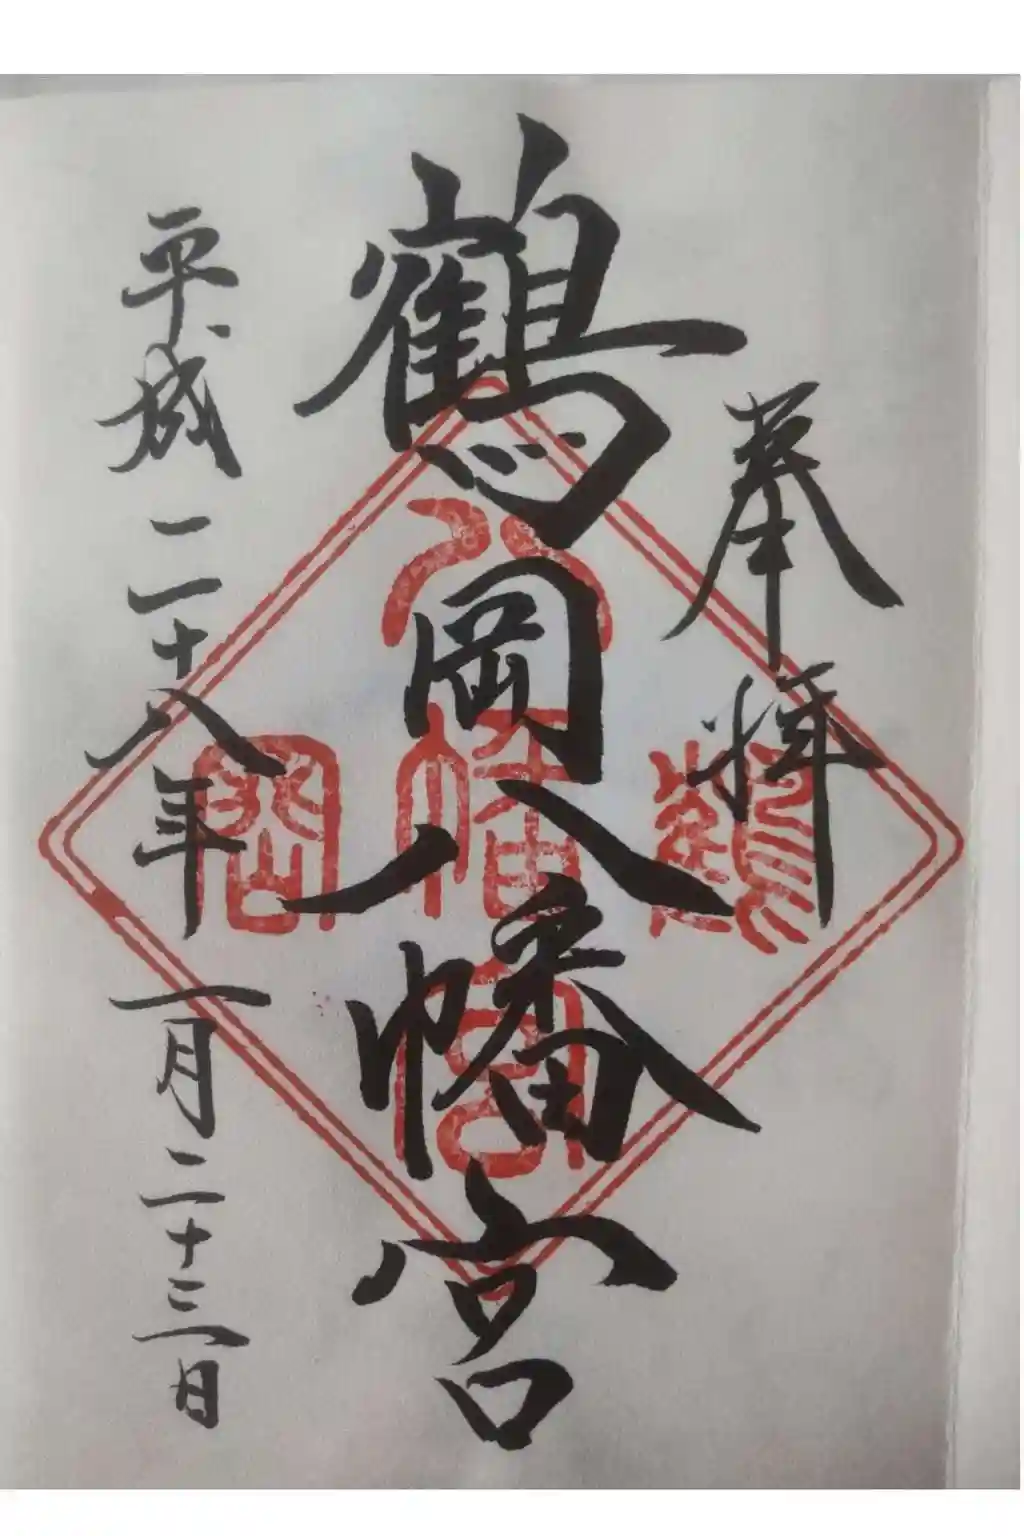 奉拝
鶴岡八幡宮
鶴
八幡宮
岡
平成二十八年一月二十三日